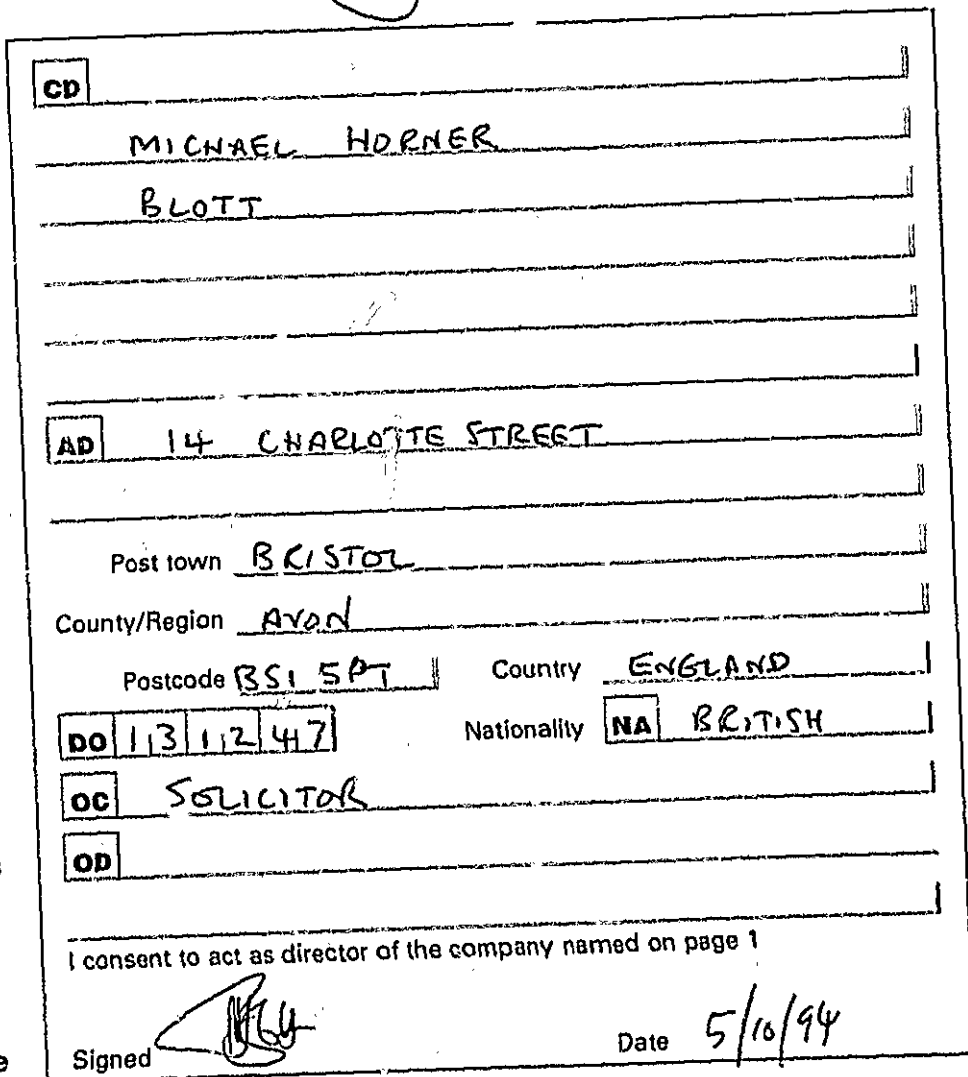 CD
MICHAEL HORNER
BLOTT
AD 14 CHARLOTTE STREET
Post town BRISTOL
County/Region AVON
Postcode BS1 5PT Country ENGLAND
DO 13 12 47 Nationality NA BRITISH
OC SOLICITOR
OD
I consent to act as director of the company named on page 1
Signed Date 5/10/94